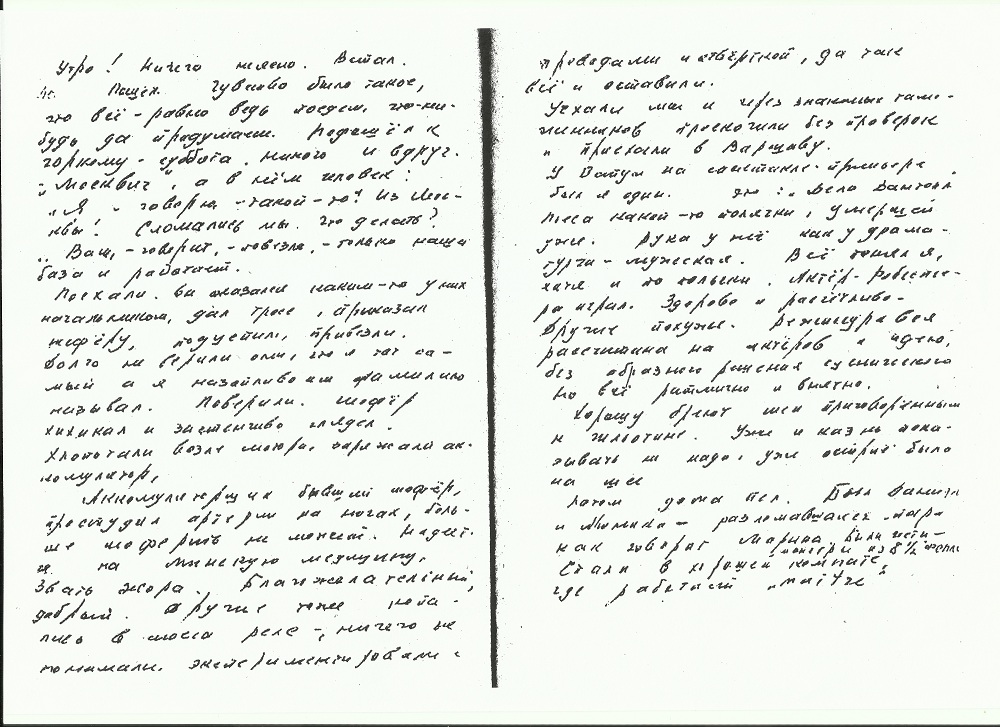 Утро! Ничего неясно. Встал.
Пошёл. Чувство было такое,
что всё-равно ведь поедем, что-ни-
будь да придумаем. Подошёл к
горкому - суббота. никого и вдруг.
"Москвич", а в нём человек:
"Я - говорю, -такой-то! Из Моск-
вы! Сломались мы. Что делать?
"Вам, - говорит, - повезло, - только наша
база и работает.
Поехали. Он оказался каким-то у них
начальником, дал трос, приказал
шофёру, подцепили, привезли.
Долго не верили они, что я тот са-
мый а я назойливо им фамилию
называл. Поверили. Шофёр
хихикал и застенчиво глядел.
Хлопотали возле мотора, заряжали ак-
комулятор,
Аккомуляторщик бывший шофёр,
простудил артерии на ногах, боль-
ше шоферить не может. Надеет-
ся на минскую медицину.
Звать Жора. Благожелательный,
добрый. Другие тоже копа-
лись в реле -, ничего не
понимали. Экспериментировали с
проводами и отвёрткой, да так
всё и оставили.
Уехали мы и через знакомых тамо-
женников проскочили без проверок
и приехали в Варшаву.
У Вайды на спектакле-премьере
был я один. Это: "Дело Дантона"
Пьеса какой-то полячки, умершей
уже. Рука у неё как у драма-
турга - мужская. Всё понял я,
хотя и по польски. Актёр-Робеспье-
ра играл. Здорово и расчётливо-
Другие похуже. Режиссура вся
рассчитана на актёров и идею,
без образного решения сценического
Но всё ритмично и внятно.
Хорошу бреют шеи приговорённым
к гильотине. Уже и казнь пока-
зывать не надо, уже остриё было
на шее
Потом дома пел. Был Даниэль
и Моника - разломавшаяся пара
как говорит Марина. Были
Спали в хорошей комнате,
где работает "maître"